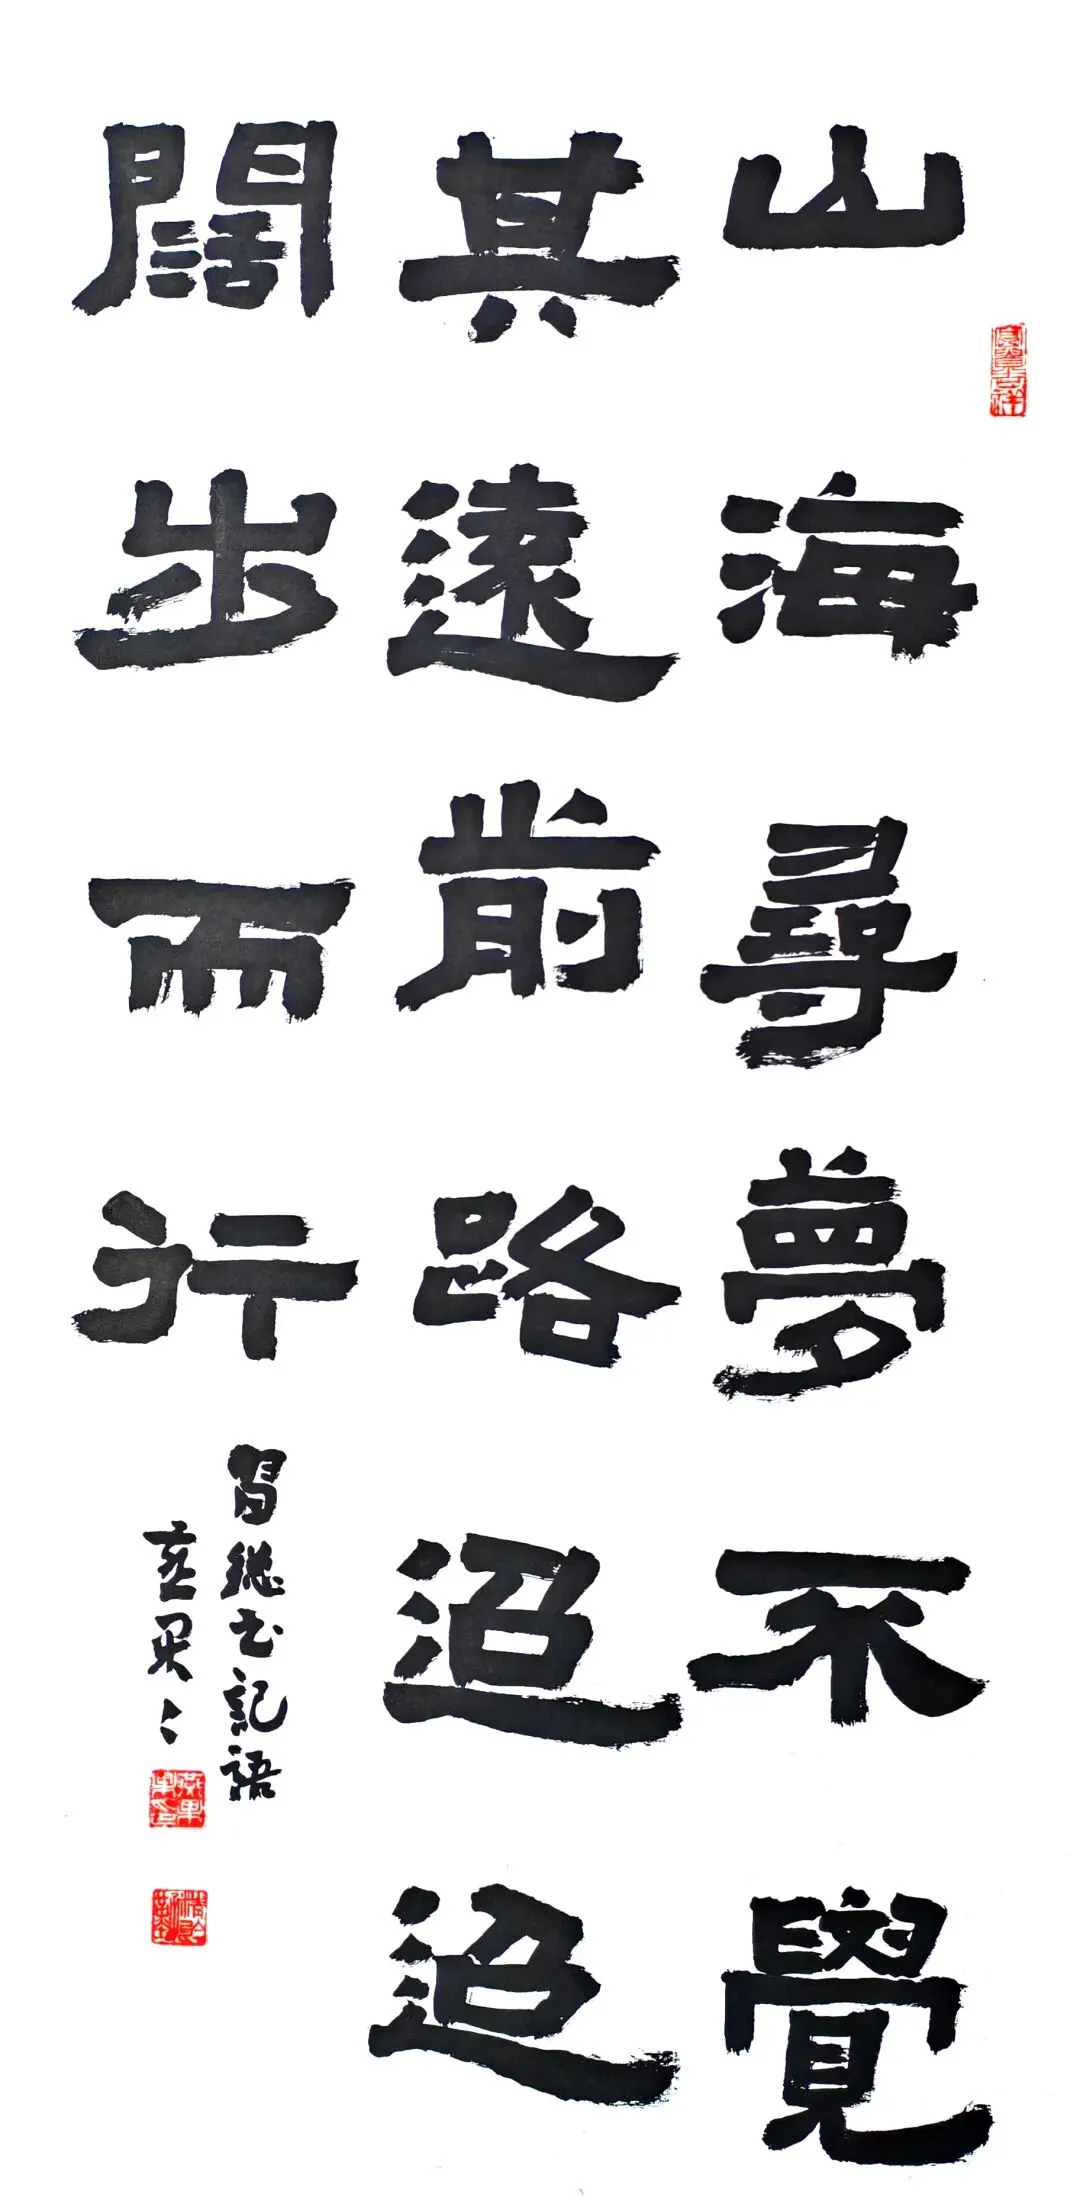 山海尋夢不覺
其遠前路迢迢
闊步而行
習總書記語
燕果